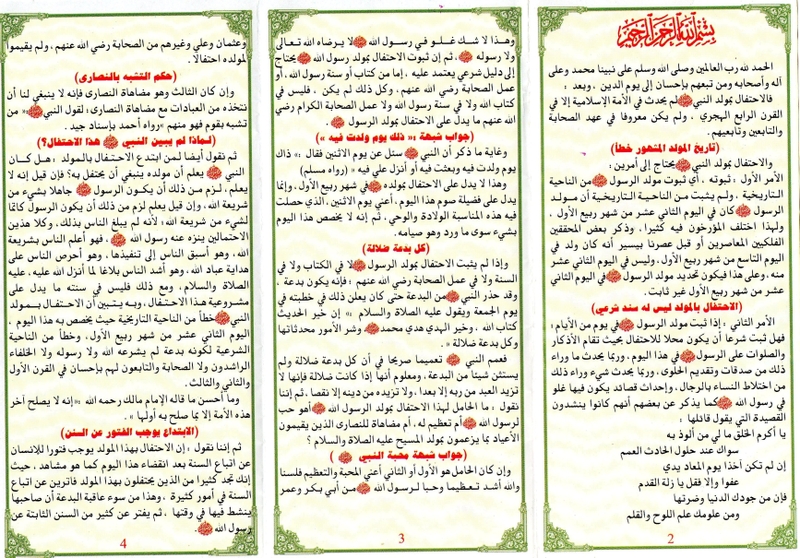 بسم الله الرحمن الرحيم
الحمد لله رب العالمين وصلى الله وسلم على نبينا محمد وعلى
آله وأصحابه ومن تبعهم بإحسان إلى يوم الدين ، وبعد :
فالاحتفال بمولد النبي ﷺ لم يحدث في الأمة الإسلامية إلا في
القرن الرابع الهجري ، ولم يكن معروفا في عهد الصحابة
والتابعين وتابعيهم .
(تاريخ المولد المشهور خطأ)
والاحتفال بمولد النبي ﷺ يحتاج إلى أمرين :
الأمر الأول ، ثبوته ، أي ثبوت مولد الرسول ﷺ من الناحية
التاريخية ، ولم يثبت من الناحية التاريخية أن مولد
الرسول ﷺ كان في اليوم الثاني عشر من شهر ربيع الأول ،
ولهذا اختلف المؤرخون فيه كثيرا ، وذكر بعض المحققين
الفلكيين المعاصرين أو قبل عصرنا بيسير أنه كان ولد في
اليوم التاسع من شهر ربيع الأول ، وليس في اليوم الثاني عشر
منه ، وعلى هذا فيكون تحديد مولد الرسول ﷺ في اليوم الثاني
عشر من شهر ربيع الأول غير ثابت .
(الاحتفال بالمولد ليس له سند شرعي)
الأمر الثاني : إذا ثبت مولد الرسول ﷺ في يوم من الأيام ؛
فهل ثبت شرعا أن يكون محلا للاحتفال بحيث تقام الأذكار
والصلوات على الرسول ﷺ في هذا اليوم ، وربما يحدث ما وراء
ذلك من صدقات وتقديم الحلوى ، وربما يحدث شيء وراء ذلك
من اختلاط النساء بالرجال ، وإحداث قصائد يكون فيها غلو
في رسول الله ﷺ كما يذكر عن بعضهم أنهم كانوا ينشدون
القصيدة التي يقول قائلها :
يا أكرم الخلق ما لي من ألوذ به
سواك عند حلول الحادث العمم
إن لم تكن آخذا يوم المعاد يدي
عفوا وإلا فقل يا زلة القدم
فإن من جودك الدنيا وضرتها
ومن علومك علم اللوح والقلم
2
وهذا لا شك غلو في رسول الله ﷺ لا يرضاه الله تعالى
ولا رسوله ﷺ ، ثم إن ثبوت الاحتفال بمولد رسول الله ﷺ يحتاج
إلى دليل شرعي يعتمد عليه ، إما من كتاب أو سنة رسول الله ، أو
عمل الصحابة رضي الله عنهم ، وكل ذلك لم يكن ، فليس في
كتاب الله ولا في سنة رسول الله ولا عمل الصحابة الكرام رضي
الله عنهم ما يدل على الاحتفال بمولد الرسول ﷺ .
(جواب شبهة : « ذلك يوم ولدت فيه »)
وغاية ما ذكر أن النبي ﷺ سئل عن يوم الاثنين فقال : « ذاك
يوم ولدت فيه وبعثت فيه أو أنزل علي فيه » (رواه مسلم)
وهذا لا يدل على الاحتفال بمولده ﷺ في شهر ربيع الأول ، وإنما
يدل على فضيلة صوم هذا اليوم ، أعني يوم الاثنين ، الذي حصلت
فيه هذه المناسبة الولادة والوحي ، ثم إنه لا يخصص هذا اليوم
بشيء سوى ما ورد وهو صيامه .
(كل بدعة ضلالة)
وإذا لم يثبت الاحتفال بمولد الرسول ﷺ لا في الكتاب ولا في
السنة ولا في عمل الصحابة رضي الله عنهم ؛ فإنه يكون بدعة ،
وقد حذر النبي ﷺ من البدعة حتى كان يعلن ذلك في خطبته في
يوم الجمعة ويقول عليه الصلاة والسلام : « إن خير الحديث
كتاب الله ، وخير الهدي هدي محمد ﷺ وشر الأمور محدثاتها
وكل بدعة ضلالة » .
فعمم النبي ﷺ تعميما صريحا في أن كل بدعة ضلالة ولم
يستثن شيئا من البدعة ، ومعلوم أنها إذا كانت ضلالة فإنها لا
تزيد العبد من ربه إلا بعدا ، ولا تزيده من دينه إلا نقصا ، ثم إننا
نقول : ما الحامل لهذا الاحتفال بمولد الرسول الله ﷺ أهو حب
لرسول الله ﷺ أم تعظيم له ، أم مضاهاة للنصارى الذين يقيمون
الأعياد بما يزعمون بمولد المسيح عليه الصلاة والسلام ؟
(جواب شبهة محبة النبي ﷺ )
وإن كان الحامل هو الأول أو الثاني أعني المحبة والتعظيم فلسنا
والله أشد تعظيما وحبا لرسول الله ﷺ من أبي بكر وعمر
3
وعثمان وعلي وغيرهم من الصحابة رضي الله عنهم ، ولم يقيموا
لمولده احتفالا .
(حكم التشبه بالنصارى)
وإن كان الثالث وهو مضاهاة النصارى فإنه لا ينبغي لنا أن
نتخذه من العبادات مع مضاهاة النصارى ؛ لقول النبي ﷺ « من
تشبه بقوم فهو منهم » رواه أحمد بإسناد جيد .
(لماذا لم يبين النبي ﷺ هذا الاحتفال؟)
ثم نقول أيضا لمن ابتدع الاحتفال بالمولد : هل كان
النبي ﷺ يعلم أن مولده ينبغي أن يحتفل به؟ فإن قيل إنه لا
يعلم ، لزم من ذلك أن يكون الرسول ﷺ جاهلا بشيء من
شريعة الله ، وإن قيل يعلم لزم من ذلك أن يكون الرسول كاتما
لشيء من شريعة الله ؛ لأنه لم يبلغ الناس بذلك ، وكلا هذين
الاحتمالين ينزه عنه رسول الله ﷺ ، فهو أعلم الناس بشريعة
الله ، وهو أسبق الناس إلى تنفيذها ، وهو أحرص الناس على
هداية عباد الله ، وهو أشد الناس بلاغا لما أنزل الله عليه ، عليه
الصلاة والسلام ، ومع ذلك فليس في سنته ما يدل على
مشروعية هذا الاحتفال ، وبه يتبين أن الاحتفال بمولد
النبي ﷺ خطأ من الناحية التاريخية حيث يخصص به هذا اليوم ،
اليوم الثاني عشر من شهر ربيع الأول ، وخطأ من الناحية
الشرعية لكونه بدعة لم يشرعه الله ولا رسوله ولا الخلفاء
الراشدون ولا الصحابة والتابعون لهم بإحسان في القرن الأول
والثاني والثالث .
وما أحسن ما قاله الإمام مالك رحمه الله : « إنه لا يصلح آخر
هذه الأمة إلا بما صلح به أولها » .
(الابتداع يوجب الفتور عن السنن)
ثم إننا نقول : إن الاحتفال بهذا المولد يوجب فتورا للإنسان
عن اتباع السنة بعد انقضاء هذا اليوم كما هو مشاهد ، حيث
إنك تجد كثيرا من الذين يحتفلون بهذا المولد فاترين عن اتباع
السنة في أمور كثيرة ، وهذا من سوء عاقبة البدعة أن صاحبها
ينشط فيها في وقتها ، ثم يفتر عن كثير من السنن الثابتة عن
رسول الله ﷺ .
4